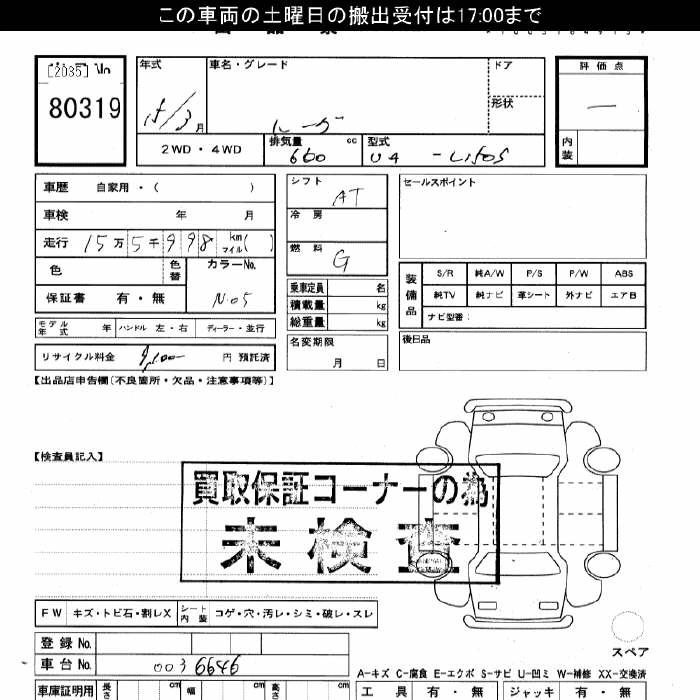 この車両の土曜日の搬出受付は17:00まで
[2035] No
80319
年式
15/3 月
車名・グレード
ドア
形状
評価点
内装
2WD・4WD
排気量 660 cc
型式
車歴 自家用・( )
車検 年 月
走行 15万5千998 km マイル( )
色 色替 カラーNo.
N-05
保証書 有・無
モデル年式 年 ハンドル 左・右 ディーラー・並行
リサイクル料金 円 預託済
シフト AT
冷房
燃料 G
乗車定員 名
積載量 kg
総重量 kg
名変期限
月 日
セールスポイント
装備品
S/R 純A/W P/S P/W ABS
純TV 純ナビ 革シート 外ナビ エアB
ナビ型番:
後日品
【出品店申告欄(不良箇所・欠品・注意事項等)】
【検査員記入】
買取保証コーナーの為
未検査
FW キズ・トビ石・割レX シート内装 コゲ・穴・汚レ・シミ・破レ・スレ
登録No.
車台No. 0036646
スペア
A-キズ C-腐食 E-エクボ S-サビ U-凹ミ W-補修 XX-交換済
車庫証明用 長さ cm 幅 cm 高さ cm
工具 有・無 ジャッキ 有・無